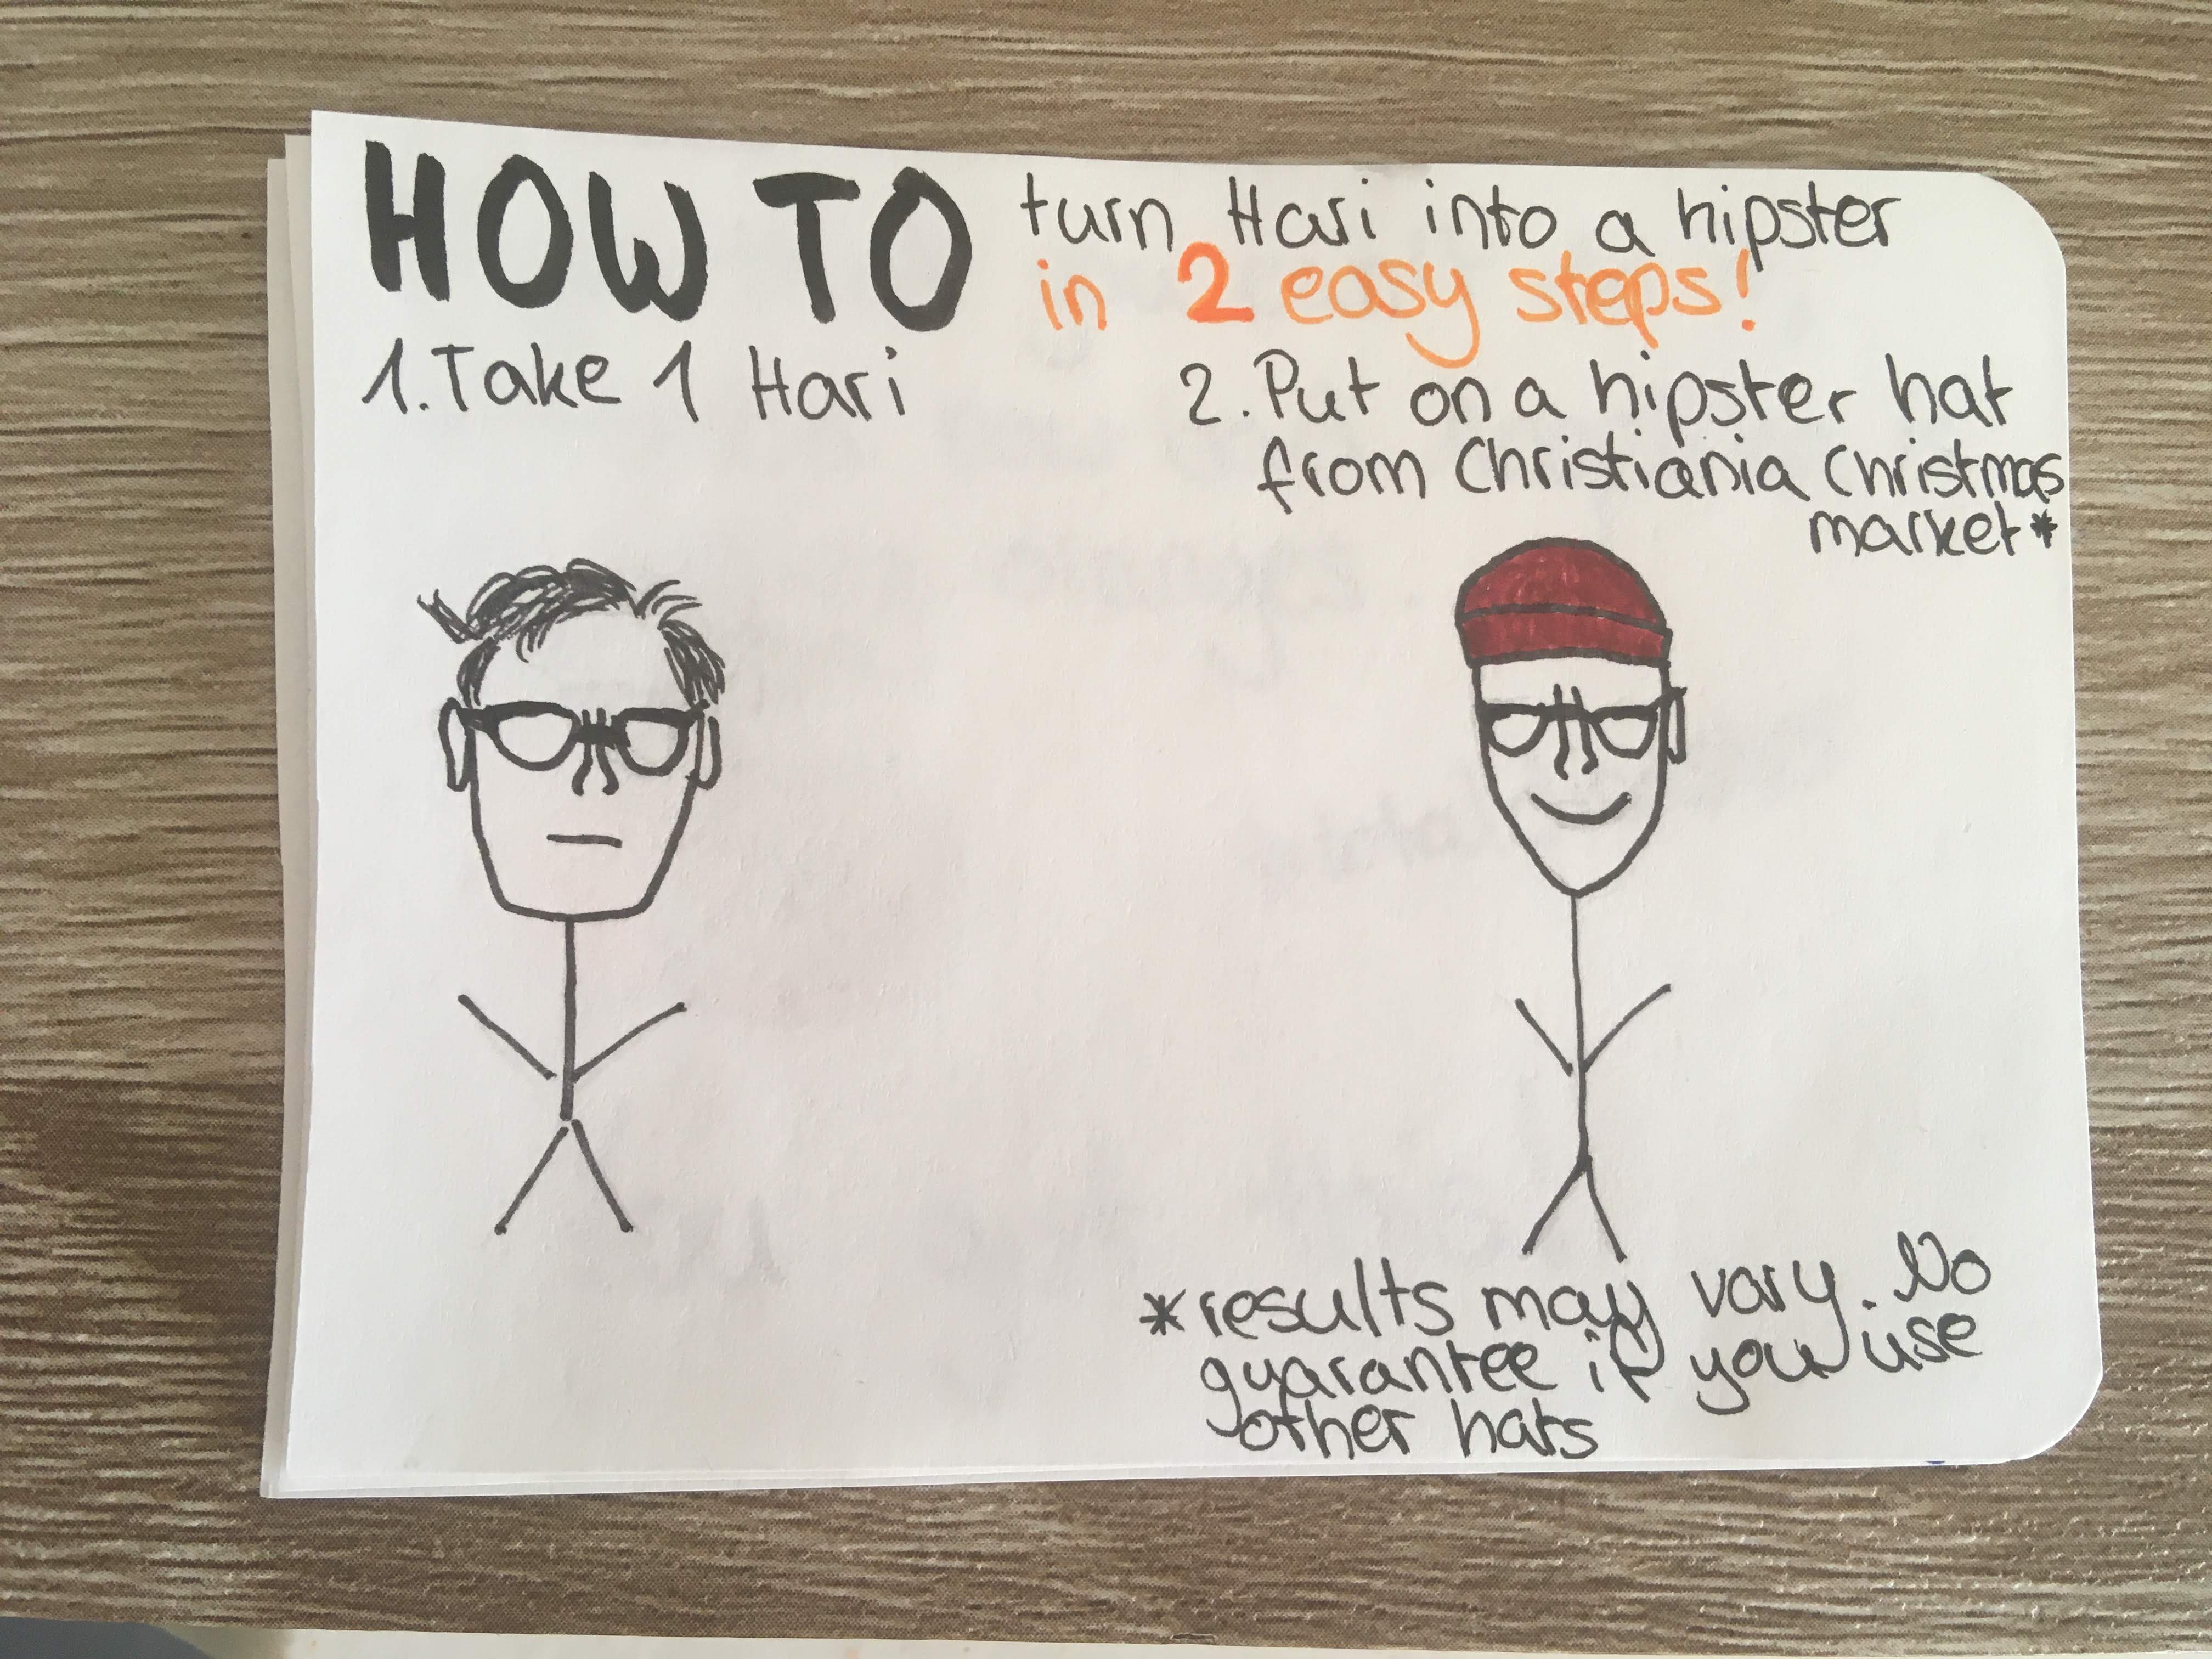 HOW TO turn Hari into a hipster
in 2 easy steps!
1. Take 1 Hari
2. Put on a hipster hat
from Christiania Christmas
market*
*results may vary. No
guarantee if you use
other hats